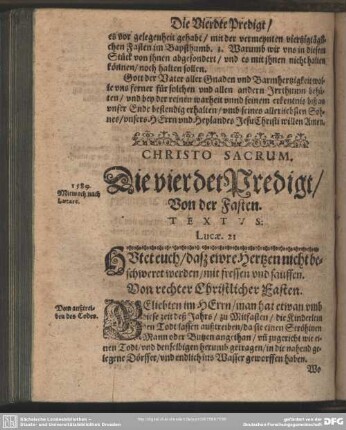 Die Vierdte Predigt/
es vor gelegenheit gehabt/ mit der vermeynten viertzigtägi-
schen Fasten im Bapsthumb. 2. Warumb wir vns in diesem
Stück von jhnen abgesondert/ vnd es mit jhnen nicht halten
können/ noch halten sollen.
Gott der Vater aller Gnaden vnd Barmhertzigkeit wol-
le vns ferner für solchen vnd allen andern Irrthumen behü-
ten/ vnd bey der reinen warheit vnnd seinem erkentnis biß an
vnser Ende bestendig erhalten/ vmb seines allerliebsten Soh-
nes/ vnsers HErrn vnd Heylandes Jesu Christi willen Amen.
CHRISTO SACRUM.
1589.
Mitwoch nach
Lætare.
Die vierdet Predigt/
Von der Fasten.
TEXTVS:
Lucæ. 21
HVtet euch/ daß ewre Hertzen nicht be-
schweret werden/ mit fressen vnd sauffen.
Von rechter Christlicher Fasten.
Vom außtrei-
ben des Todes.
GEliebten im HErrn/ man hat etwan vmb
diese zeit deß Jahrs/ zu Mitfasten/ die Kinderlein
den Todt lassen außtreiben/ da sie einen Ströhinen
Mann oder Butzen angethan/ vñ zugericht wie ei-
nen Todt/ vnd denselbigen herumb getragen/ in die nahend ge-
legene Dörffer/ vnd endlich ins Wasser geworffen haben.
Wo
Sächsische Landesbibliothek –
Staats- und Universitätsbibliothek Dresden
gefördert von der
Deutschen Forschungsgemeinschaft
DFG